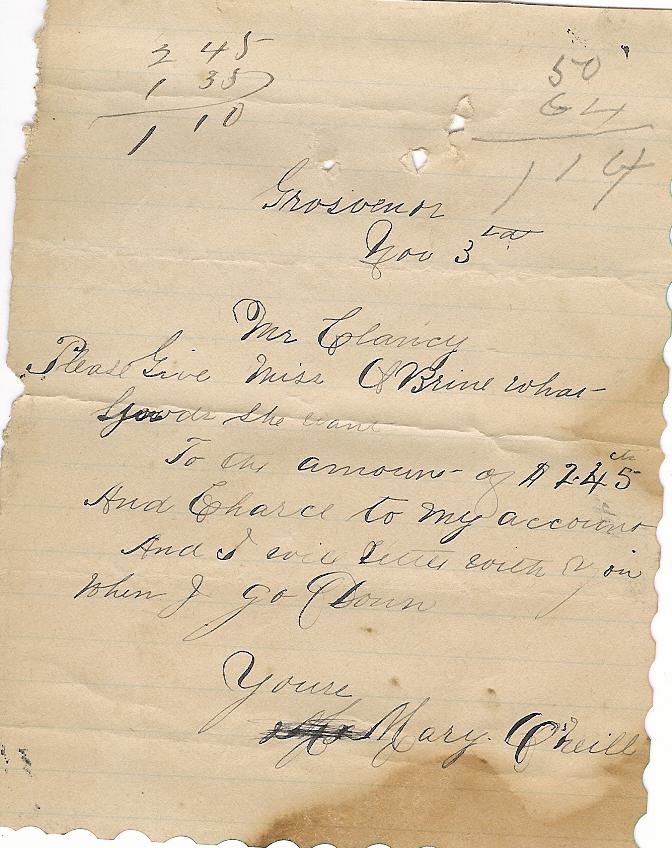 2 45
1 35
1 10
50
64
114
Grosvenor
Nov 3rd
Mr Clancy
Please Give Miss OBrine what
Goods She want
To the amount of $ 2.45 cts
And Charce to my account
And I will settle with you
when I go Down
Youre
Mary O'Neill